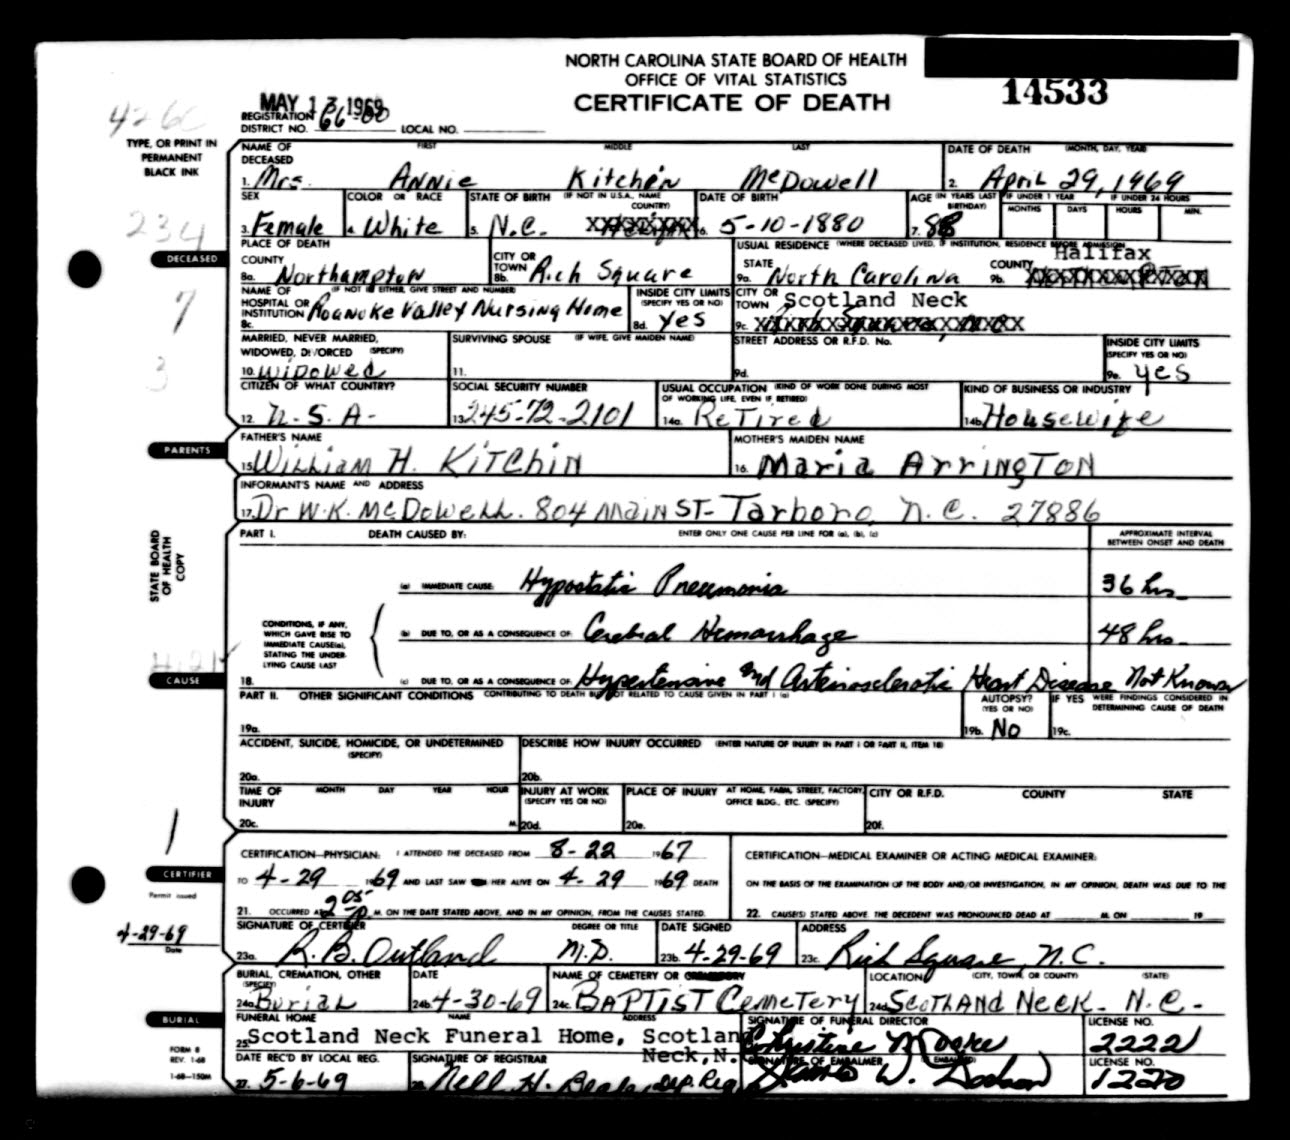 NORTH CAROLINA STATE BOARD OF HEALTH
OFFICE OF VITAL STATISTICS
CERTIFICATE OF DEATH
14533
MAY 13 1969
REGISTRATION DISTRICT NO. 66-80 LOCAL NO.
426C
TYPE, OR PRINT IN
PERMANENT
BLACK INK
NAME OF DECEASED FIRST MIDDLE LAST DATE OF DEATH (MONTH, DAY, YEAR)
1. Mrs. Annie Kitchin McDowell 2. April 29, 1969
SEX COLOR OR RACE STATE OF BIRTH (IF NOT IN U.S.A., NAME COUNTRY) DATE OF BIRTH AGE (IN YEARS LAST BIRTHDAY) IF UNDER 1 YEAR IF UNDER 24 HOURS
MONTHS DAYS HOURS MIN.
3. Female 4. White 5. N.C. 6. 5-10-1880 7. 88
234
DECEASED
PLACE OF DEATH USUAL RESIDENCE (WHERE DECEASED LIVED, IF INSTITUTION, RESIDENCE BEFORE ADMISSION)
COUNTY CITY OR TOWN STATE COUNTY Halifax
8a. Northampton 8b. Rich Square 9a. North Carolina 9b.
NAME OF HOSPITAL OR INSTITUTION (IF NOT IN EITHER, GIVE STREET AND NUMBER) INSIDE CITY LIMITS (SPECIFY YES OR NO) CITY OR TOWN Scotland Neck
8c. Roanoke Valley Nursing Home 8d. Yes 9c.
7
MARRIED, NEVER MARRIED, WIDOWED, DIVORCED (SPECIFY) SURVIVING SPOUSE (IF WIFE, GIVE MAIDEN NAME) STREET ADDRESS OR R.F.D. No. INSIDE CITY LIMITS (SPECIFY YES OR NO)
10. Widowed 11. 9d. 9e. yes
3
CITIZEN OF WHAT COUNTRY? SOCIAL SECURITY NUMBER USUAL OCCUPATION (KIND OF WORK DONE DURING MOST OF WORKING LIFE, EVEN IF RETIRED) KIND OF BUSINESS OR INDUSTRY
12. U.S.A- 13. 245-72-2101 14a. Retired 14b. Housewife
PARENTS
FATHER'S NAME MOTHER'S MAIDEN NAME
15. William H. Kitchin 16. Maria Arrington
INFORMANT'S NAME AND ADDRESS
17. Dr W.K. McDowell. 804 Main ST- Tarboro, N.C. 27886
STATE BOARD
OF HEALTH
COPY
PART I. DEATH CAUSED BY: ENTER ONLY ONE CAUSE PER LINE FOR (a), (b), (c) APPROXIMATE INTERVAL BETWEEN ONSET AND DEATH
(a) IMMEDIATE CAUSE: Hypostatic Pneumonia 36 hrs
CONDITIONS, IF ANY, WHICH GAVE RISE TO IMMEDIATE CAUSE(a), STATING THE UNDERLYING CAUSE LAST
(b) DUE TO, OR AS A CONSEQUENCE OF: Cerebral Hemorrhage 48 hrs
CAUSE
18. (c) DUE TO, OR AS A CONSEQUENCE OF: Hypertensive and Arteriosclerotic Heart Disease Not Known
PART II. OTHER SIGNIFICANT CONDITIONS CONTRIBUTING TO DEATH BUT NOT RELATED TO CAUSE GIVEN IN PART I (a) AUTOPSY? (YES OR NO) IF YES WERE FINDINGS CONSIDERED IN DETERMINING CAUSE OF DEATH
19a. 19b. No 19c.
ACCIDENT, SUICIDE, HOMICIDE, OR UNDETERMINED (SPECIFY) DESCRIBE HOW INJURY OCCURRED (ENTER NATURE OF INJURY IN PART I OR PART II, ITEM 18)
20a. 20b.
TIME OF INJURY MONTH DAY YEAR HOUR INJURY AT WORK (SPECIFY YES OR NO) PLACE OF INJURY AT HOME, FARM, STREET, FACTORY, OFFICE BLDG., ETC. (SPECIFY) CITY OR R.F.D. COUNTY STATE
20c. M. 20d. 20e. 20f.
1
CERTIFIER
CERTIFICATION—PHYSICIAN: I ATTENDED THE DECEASED FROM 8-22 1967 CERTIFICATION—MEDICAL EXAMINER OR ACTING MEDICAL EXAMINER:
TO 4-29 1969 AND LAST SAW HER ALIVE ON 4-29 1969 DEATH ON THE BASIS OF THE EXAMINATION OF THE BODY AND/OR INVESTIGATION, IN MY OPINION, DEATH WAS DUE TO THE
21. OCCURRED AT 2 05 P M. ON THE DATE STATED ABOVE, AND IN MY OPINION, FROM THE CAUSES STATED. 22. CAUSE(S) STATED ABOVE. THE DECEDENT WAS PRONOUNCED DEAD AT M. ON 19
Permit issued
4-29-69
Date
SIGNATURE OF CERTIFIER DEGREE OR TITLE DATE SIGNED ADDRESS
23a. R. B. Outland M.D. 23b. 4-29-69 23c. Rich Square, N.C.
BURIAL, CREMATION, OTHER (SPECIFY) DATE NAME OF CEMETERY OR LOCATION (CITY, TOWN, OR COUNTY) (STATE)
24a. Burial 24b. 4-30-69 24c. Baptist Cemetery 24d. Scotland Neck- N.C-
BURIAL
FUNERAL HOME NAME ADDRESS SIGNATURE OF FUNERAL DIRECTOR LICENSE NO.
25. Scotland Neck Funeral Home, Scotland Neck, N. Christine M Doare 2222
FORM 8
REV. 1-68
1-68-150M
DATE REC'D BY LOCAL REG. SIGNATURE OF REGISTRAR SIGNATURE OF EMBALMER (IF EMBALMED) LICENSE NO.
27. 5-6-69 28. Nell H. Beale, Dep. Reg W. Dodson 1220